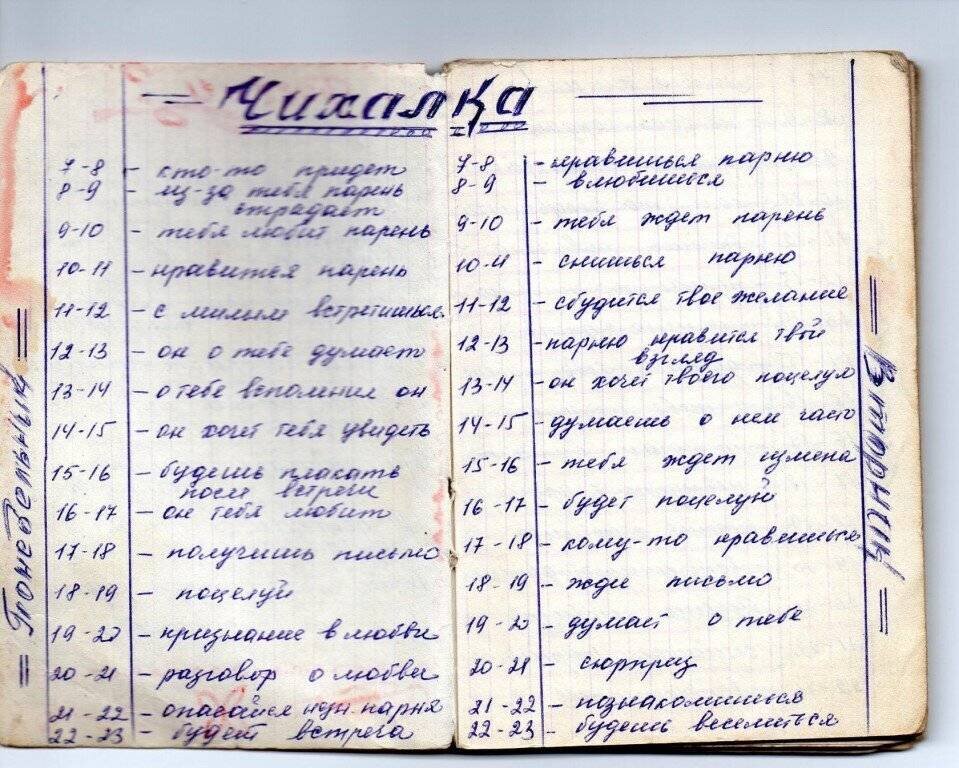 Чихалка
Понедельник
7-8 - кто-то придет
8-9 - из-за тебя парень
страдает
9-10 - тебя любит парень
10-11 - нравится парень
11-12 - с милым встретишься
12-13 - он о тебе думает
13-14 - о тебе вспомнил он
14-15 - он хочет тебя увидеть
15-16 - будешь плакать
после встречи
16-17 - он тебя любит
17-18 - получишь письмо
18-19 - поцелуй
19-20 - признание в любви
20-21 - разговор о любви
21-22 - опасайся парня
22-23 - будет встреча
7-8 - нравишься парню
8-9 - влюбишься
9-10 - тебя ждет парень
10-11 - снишься парню
11-12 - сбудится твое желание
12-13 - парню нравится твой
взгляд
13-14 - он хочет твоего поцелуя
14-15 - думаешь о нем часто
15-16 - тебя ждет измена
16-17 - будет поцелуй
17-18 - кому-то нравишься
18-19 - жди письмо
19-20 - думает о тебе
20-21 - сюрприз
21-22 - познакомишься
22-23 - будешь веселиться
Вторник